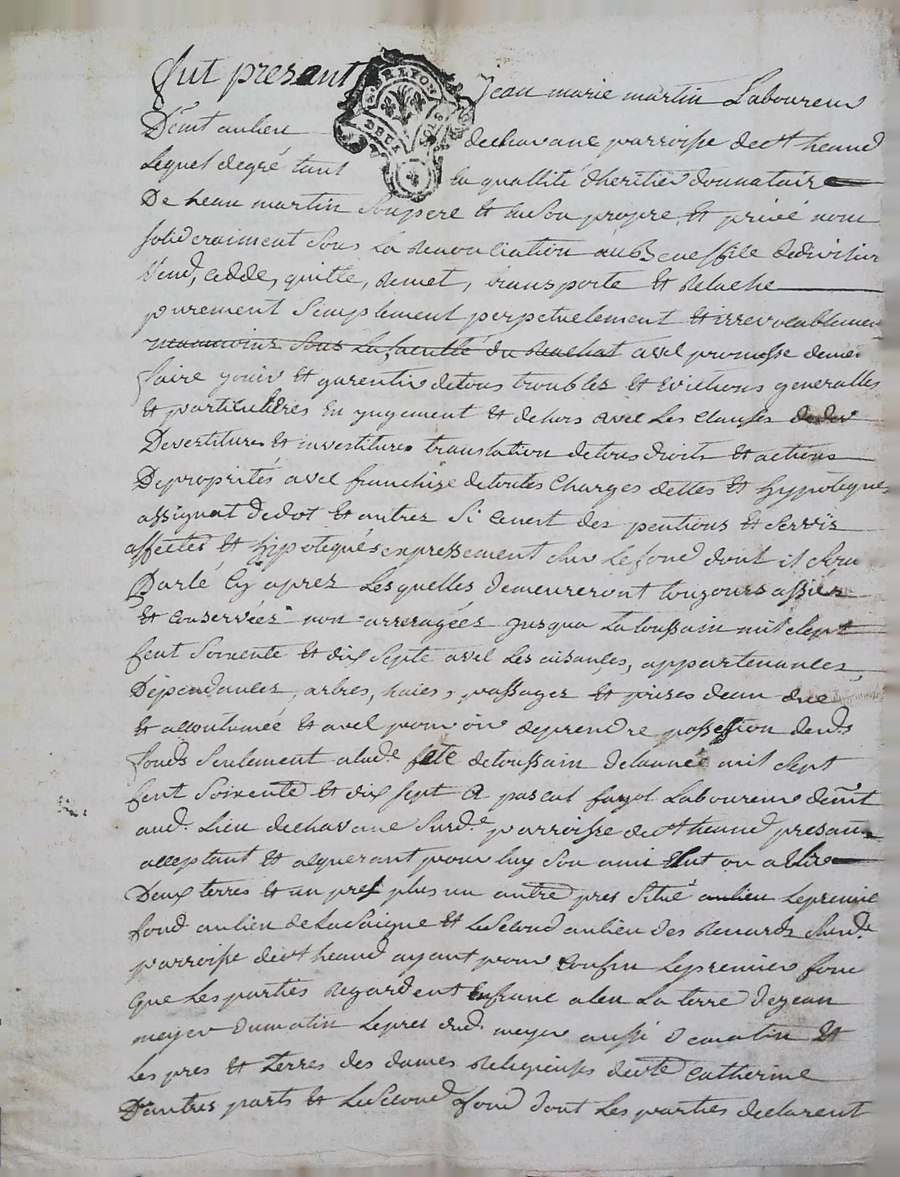 fut presant Jean marie martin Laboureur
G. DE LYON
DEUX SOLS
Demt aulieu dechavane parroisse de st heand
Lequel degré tant En quallité dheritier donnataire
De hean martin Son pere Et En Son propre Et privé nom
Solideraiment Sous La Renontiation au Beneffice dedivision
Vend, cedde, quitte, Remet, transporte Et Relache
purement Simplement perpetuelement Et irrevocablement
neanmoins Sous La faculté du Rachat avel promesse de
faire jouir Et garentir detous troubles Et Evictions generalles
Et particulières En jugement Et dehors avel Les Clauses
Devertitures Et investitures translation detous droits Et actions
De proprietés avel franchise detoutes Charges dettes Et hypoteques
assignat dedot Et autres Si Cenest des pentions Et Servis
affettés Et hipotequés expressement Sur Le fond dont il Sera
Parlé Cy aprez Lesquelles demeureront toujours assise
Et Conservées non arreragées jusqua Latoussain mil Sept
Cent Soixente Et dix Septe avel Les aisances, appartenances
Dépendances, arbres, haies, passages Et prises deau due
Et accoutumée Et avel pouvoir deprendre possession desd.
fonds Seulement alad.e fete detoussain delannée mil Sept
Cent Soixente Et dix sept A pascal fayol Laboureur demt
aud. Lieu dechavane Surd.e parroisse de st heand presant
acceptant Et aquerant pour luy Son ami Elut ou a Elire
Deux terres Et un pres plus un autre pres Situé aulieu Lepremier
fond aulieu de La Saigne Et LeSecond aulieu des Renards Surd.e
parroisse de st heand ayant pour Confin Lepremier fond
que Les parties Regardent Enfranc aleu La terre dejean
meyer dematin Lepres dud. meyer aussi dematin Et
Les pres Et terres des dames Religieuses de ste Catherine
D'autres parts Et LeSecond fond dont Les parties declarent